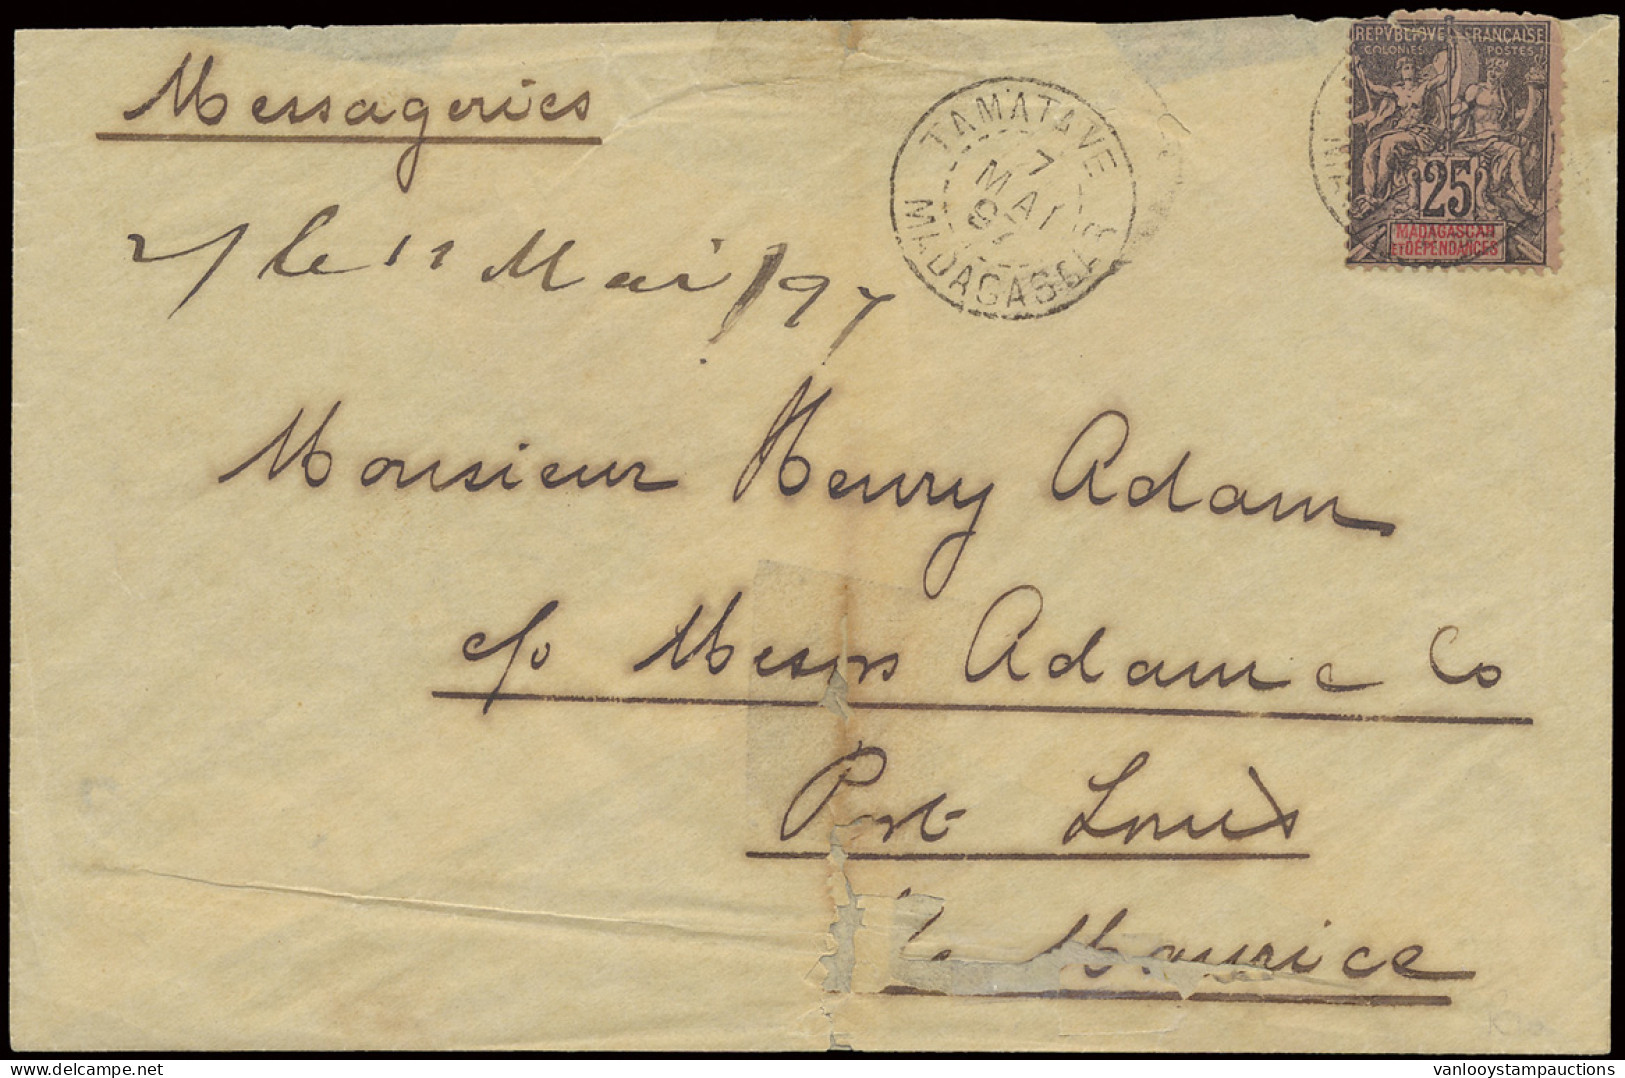 Messageries
le 11 Mai/97
TAMATAVE
7
MAI
97
MADAGASCAR
REPVBLIQVE FRANÇAISE
COLONIES POSTES
25
MADAGASCAR
ET DÉPENDANCES
Monsieur Henry Adam
c/o Messrs Adam & Co
Port Louis
Maurice
vanlooystampauctions